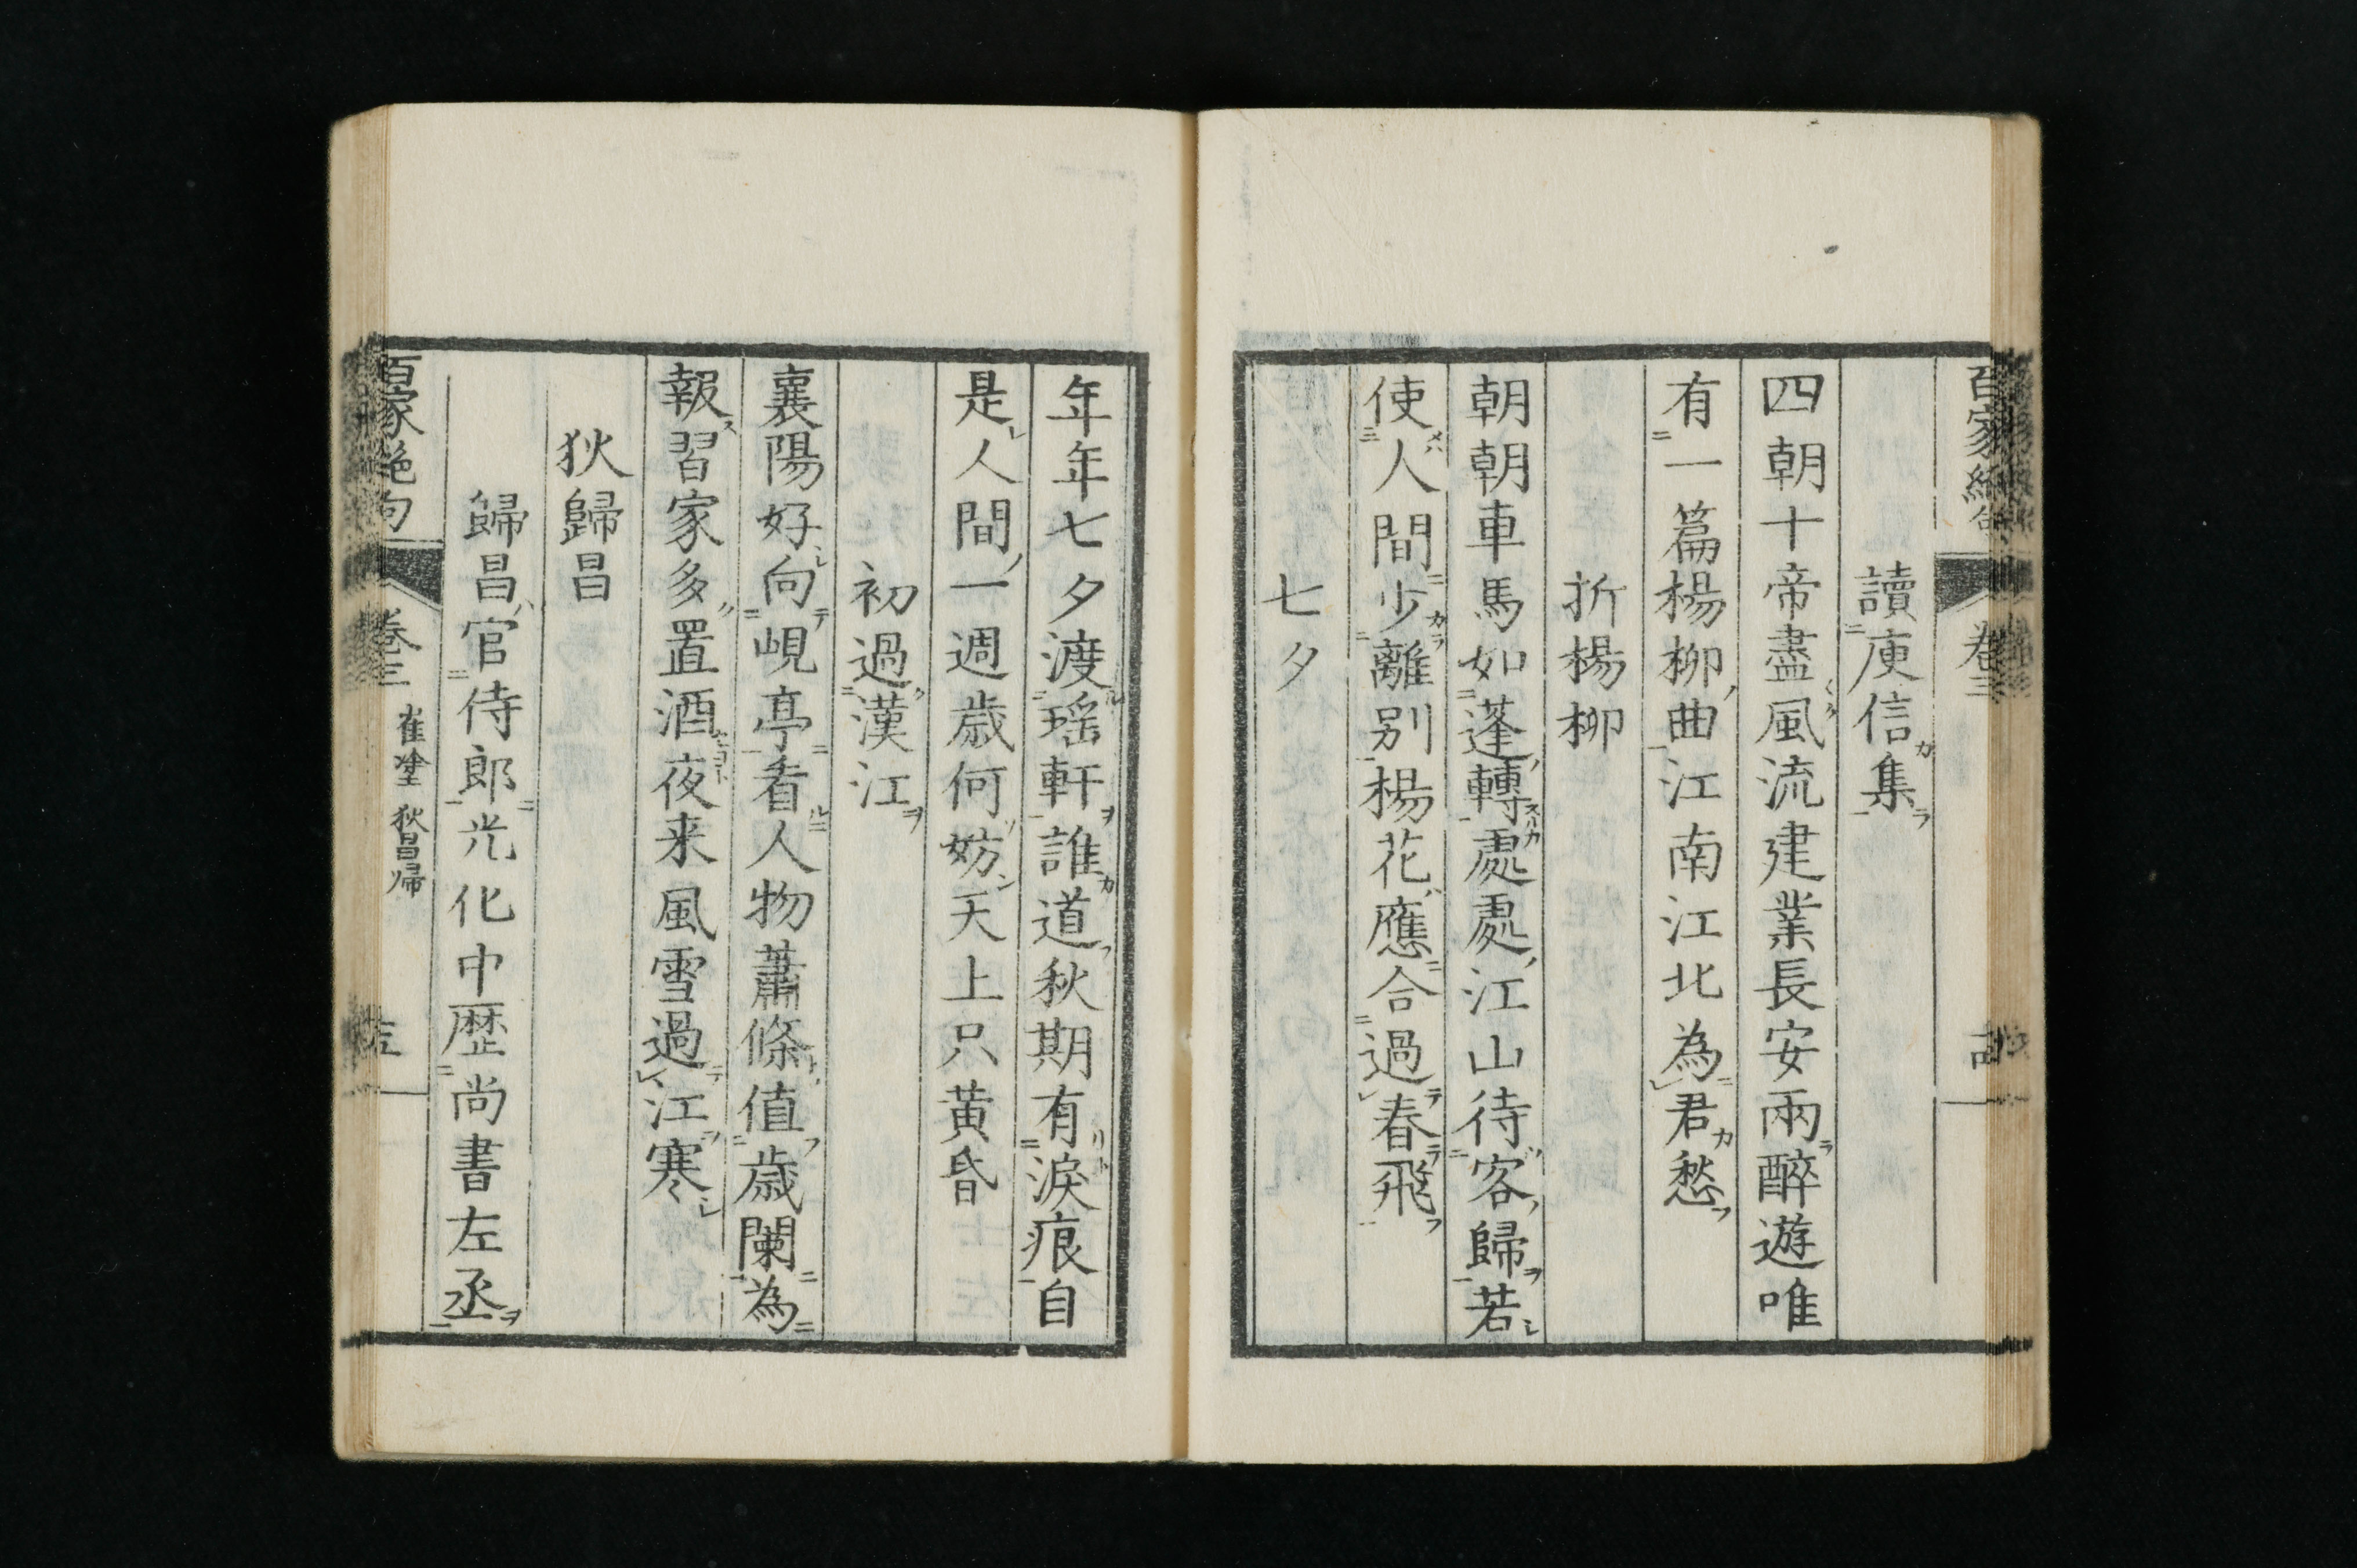 百家絶句 卷三
讀庾信集
四朝十帝盡風流建業長安兩醉遊唯
有一篇楊柳曲江南江北為君愁
折楊柳
朝朝車馬如蓬轉處處江山待客歸若
使人間少離別楊花應合過春飛
七夕
年年七夕渡瑤軒誰道秋期有淚痕自
是人間一週歲何妨天上只黃昏
初過漢江
襄陽好向峴亭看人物蕭條值歲闌為
報習家多置酒夜来風雪過江寒
狄歸昌
歸昌官侍郎光化中歴尚書左丞
百家絶句 卷三 崔塗 狄昌帰